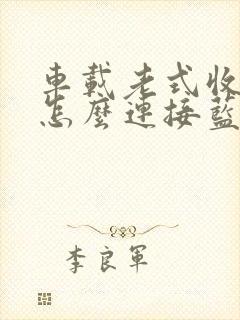 車載老式收
怎麼連接藍
李良軍